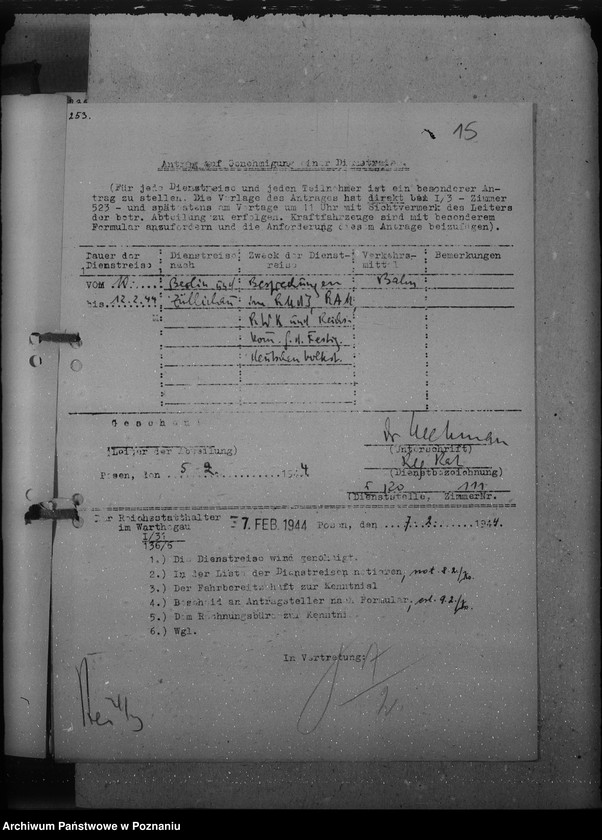 253.
15
Antrag auf Genehmigung einer Dienstreise.
(Für jede Dienstreise und jeden Teilnehmer ist ein besonderer An-
trag zu stellen. Die Vorlage des Antrages hat direkt bei I/3 - Zimmer
523 - und spätestens am Vortage um 11 Uhr mit Sichtvermerk des Leiters
der betr. Abteilung zu erfolgen. Kraftfahrzeuge sind mit besonderem
Formular anzufordern und die Anforderung diesem Antrage beizufügen).
Dauer der Dienstreise Zweck der Dienst- Verkehrs- Bemerkungen
Dienstreise nach reise mittel
vom 10. Berlin und Besprechungen Bahn
bis 12.2.44 Züllichau im RMdI, RAM,
RWK und Reichs-
kom. f.d. Festig.
deutschen Volkst.
Gesehen:
(Leiter der Abteilung) (Unterschrift)
Reg Rat
Posen, den 5. 2. 1944 (Dienstbezeichnung)
120 111
(Dienststelle, ZimmerNr.
Der Reichsstatthalter 7. FEB. 1944 Posen, den 7. 2. 1944.
im Warthegau
I/31
136/5
1.) Die Dienstreise wird genehmigt.
2.) In der Liste der Dienstreisen notieren,
3.) Der Fahrbereitschaft zur Kenntnis!
4.) Bescheid an Antragsteller nach Formular,
5.) Dem Rechnungsbüro zur Kenntnis.
6.) Wgl.
In Vertretung:
Archiwum Państwowe w Poznaniu